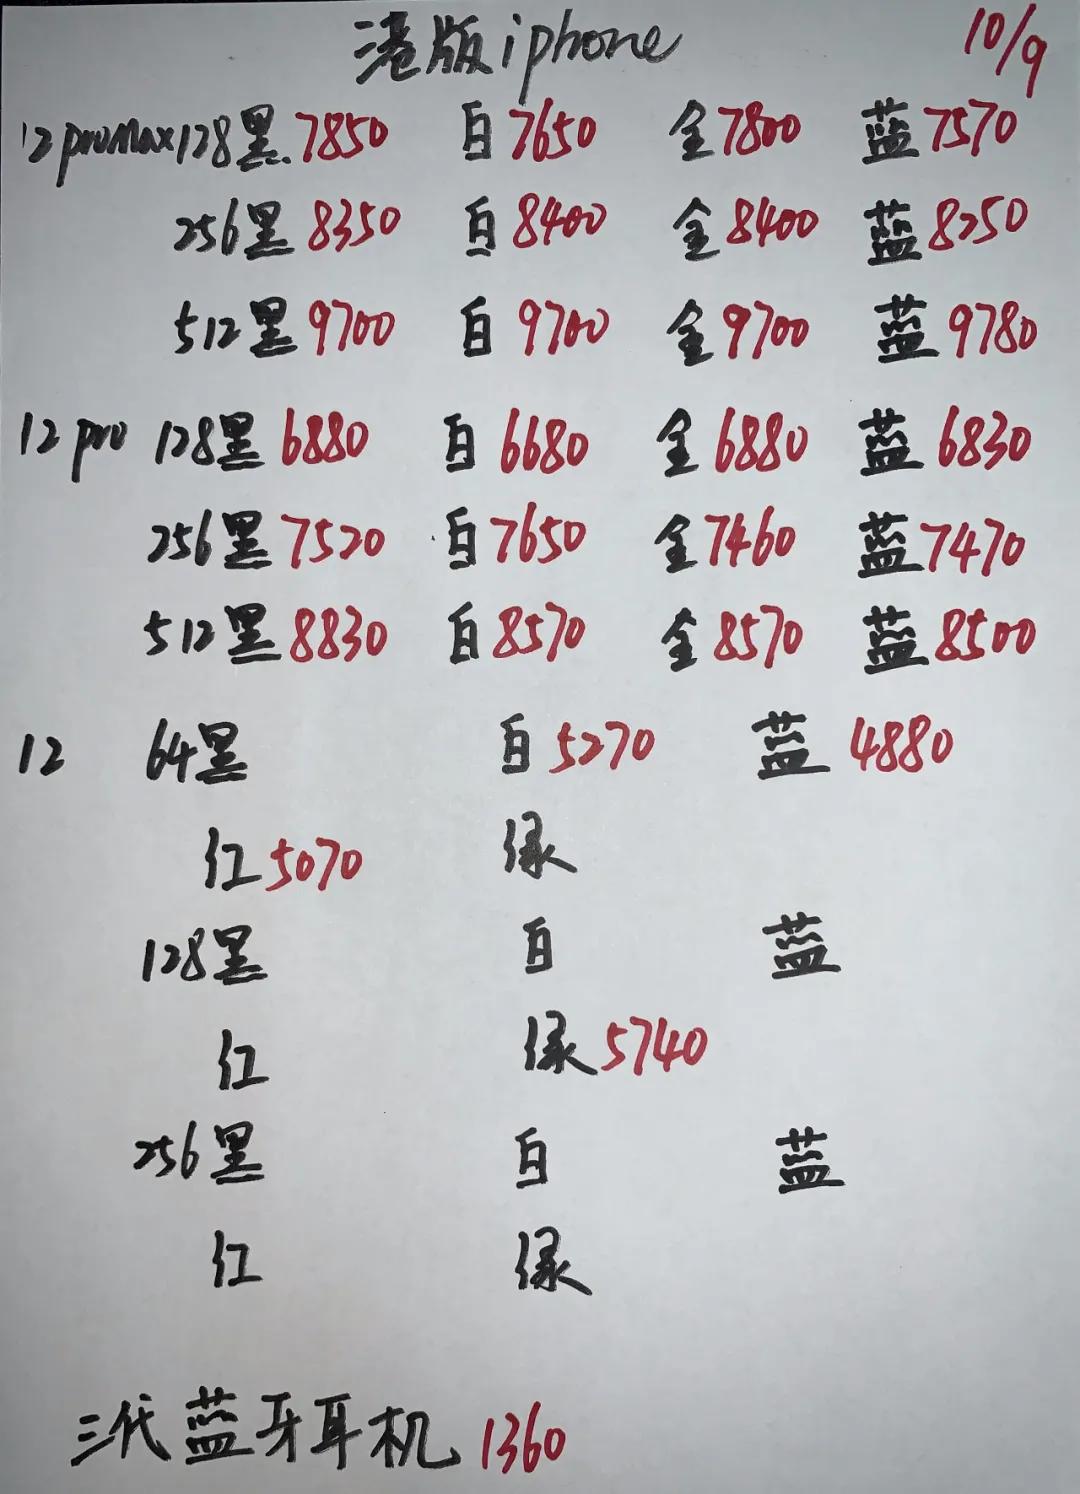 港版iphone 10/9
12promax128黑.7850 白7650 金7800 蓝7570
256黑8350 白8400 金8400 蓝8250
512黑9700 白9700 金9700 蓝9780
12pro 128黑6880 白6680 金6880 蓝6830
256黑7520 白7650 金7460 蓝7470
512黑8830 白8570 金8570 蓝8500
12 64黑 白5270 蓝4880
红5070 绿
128黑 白 蓝
红 绿5740
256黑 白 蓝
红 绿
三代蓝牙耳机1360